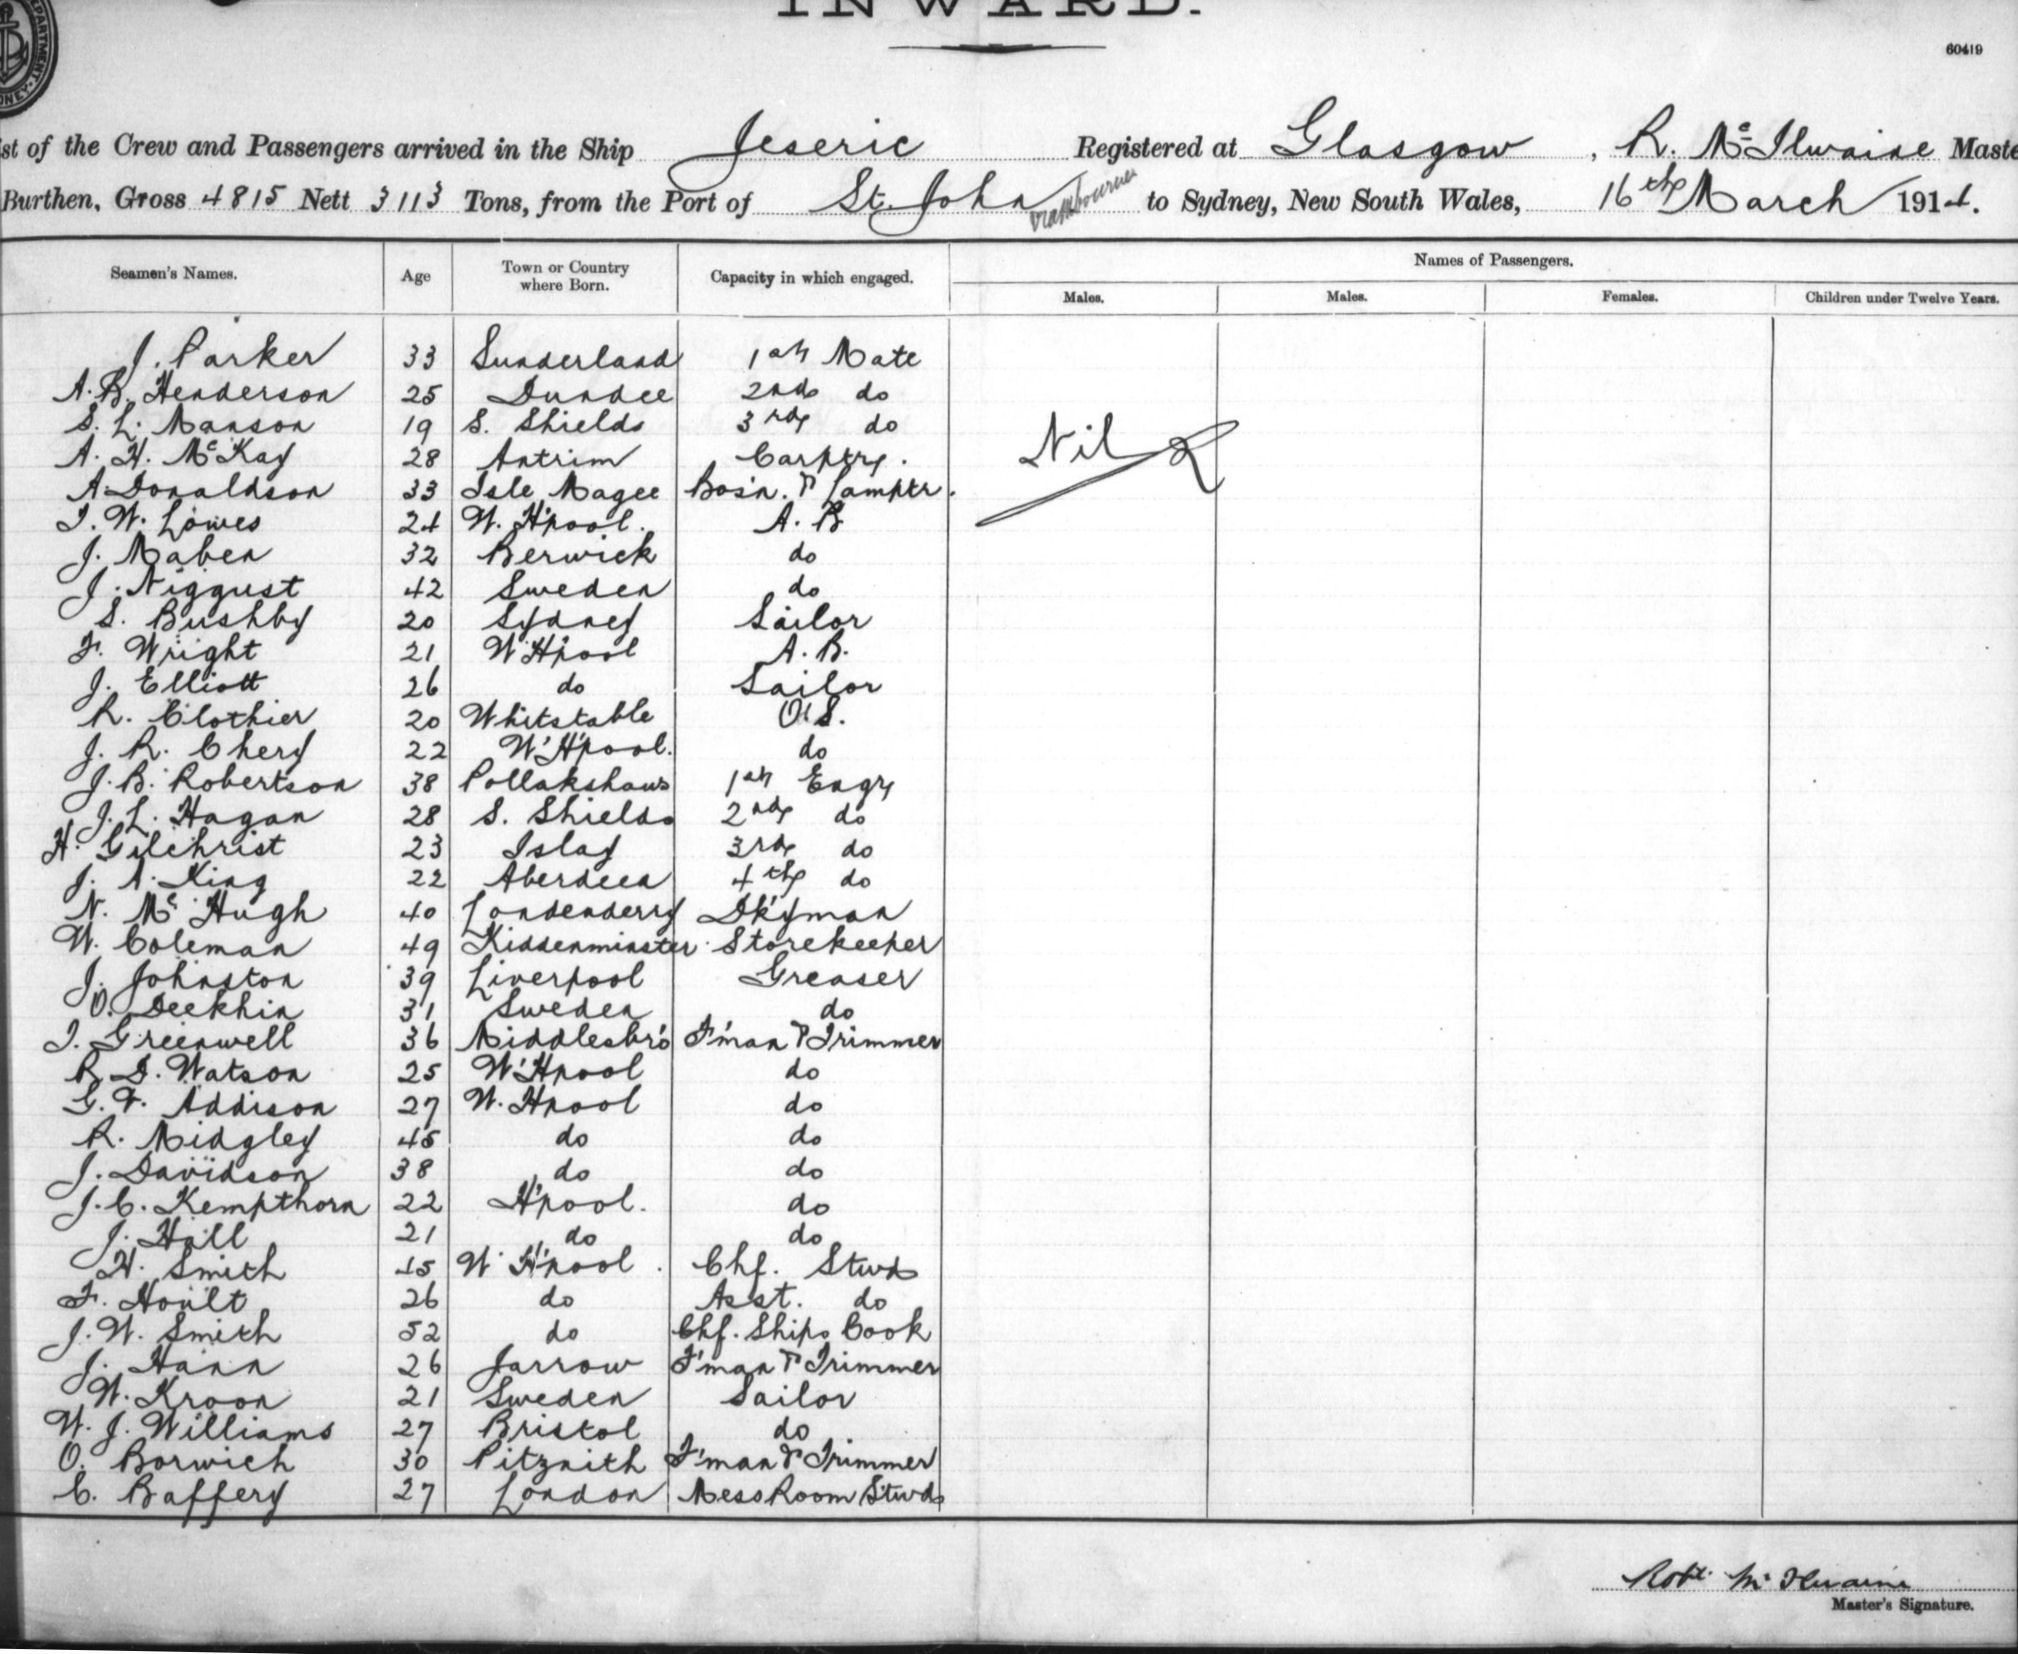 INWARD.
60419
EPARTMENT.
NEY.
st of the Crew and Passengers arrived in the Ship Jeseric Registered at Glasgow, R. McIlwaine Maste
Burthen, Gross 4815 Nett 3113 Tons, from the Port of St. John via Melbourne to Sydney, New South Wales, 16th March 1914.
Seamen's Names. Age Town or Country where Born. Capacity in which engaged. Names of Passengers.
Males. Males. Females. Children under Twelve Years.
J. Parker 33 Sunderland 1st Mate
A. B. Henderson 25 Dundee 2nd do
S. L. Manson 19 S. Shields 3rd do
A. H. McKay 28 Antrim Carptr.
Nil
A Donaldson 33 Isle Magee Bos'n. & Lamptr.
T. W. Lowes 24 W. H'pool. A. B
J. Maben 32 Berwick do
J. Niggust 42 Sweden do
S. Bushby 20 Sydney Sailor
F. Wright 21 W H'pool A. B.
J. Elliott 26 do Sailor
R. Clothier 20 Whitstable O S.
J. R. Chery 22 W' H'pool. do
J. B. Robertson 38 Pollakshaws 1st Engr
J. L. Hagan 28 S. Shields 2nd do
H. Gilchrist 23 Islay 3rd do
J. A. King 22 Aberdeen 4th do
N. Mc Hugh 40 Londenderry Dk'yman
W. Coleman 49 Kiddenminster Storekeeper
J. Johnston 39 Liverpool Greaser
O. Deekhin 31 Sweden do
T. Greenwell 36 Middlesbro' F'man & Trimmer
R. D. Watson 25 W' H'pool do
G. F. Addison 27 W. Hpool do
R. Midgley 45 do do
J. Davidson 38 do do
J. C. Kempthorn 22 H'pool. do
J. Hall 21 do do
H. Smith 45 W H'pool. Chf. Stwd
F. Hoult 26 do Asst. do
J. W. Smith 52 do Chf. Ships Cook
J. Hann 26 Jarrow F'man & Trimmer
W. Kroon 21 Sweden Sailor
W. J. Williams 27 Bristol do
O. Borwich 30 Pitznith F'man & Trimmer
C. Baffery 27 London Mess Room Stwd
Robt. McIlwaine
Master's Signature.